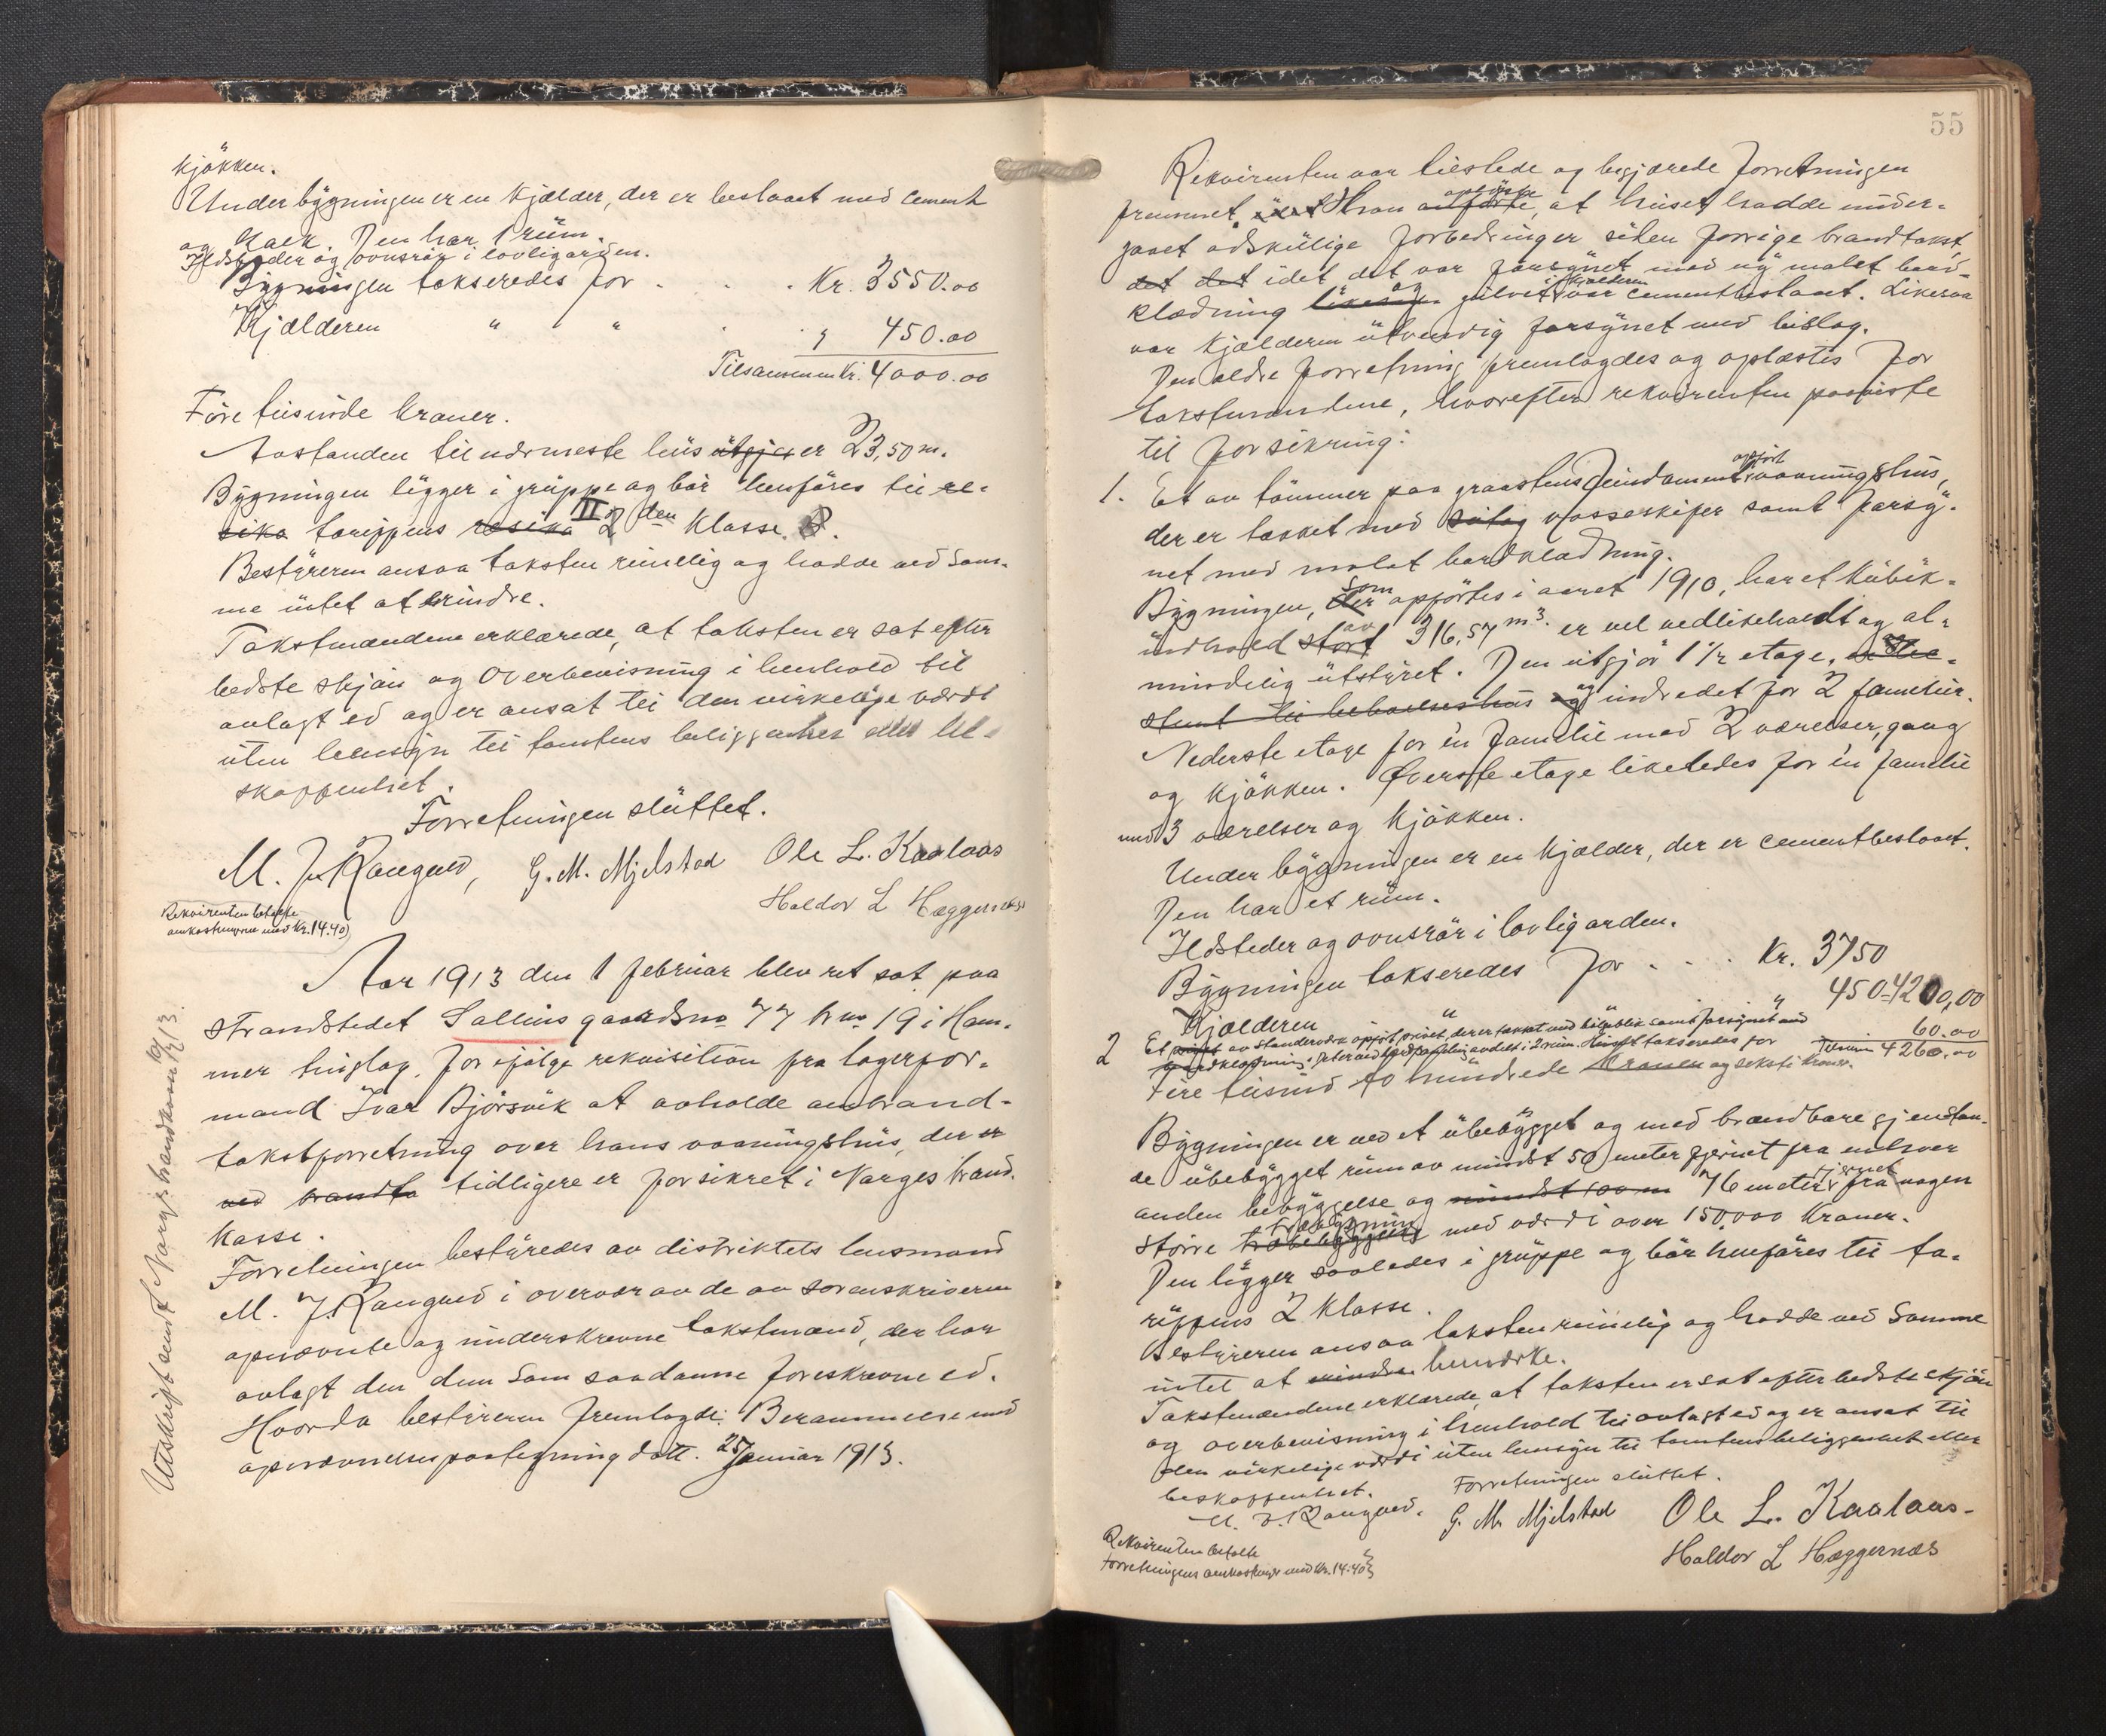 kjökken.
Underbygningen er en kjælder, der er beslaaet med cement
og kalk. Den har 1 rum.
Ildsteder og ovnsrör i lovlig orden.
Bygningen takseredes for . . . Kr. 3550.00
Kjælderen " " " . . " 450.00
Tilsammen Kr. 4000.00
Fire tusinde kroner.
Avstanden til nærmeste hus utgjør er 23,50 m.
Bygningen ligger i gruppe og bör henföres til re-
sika tariffens resika II 2den Klasse.
Bestyreren ansaa taksten rimelig og hadde ved sam-
me intet at erindre.
Takstmændene erklærede, at taksten er sat efter
bedste skjön og overbevisning i henhold til
avlagt ed og er ansat til den virkelige værdi
uten hensyn til tomtens beliggenhet eller be-
skaffenhet.
Forretningen sluttet.
M. J. Rangved, G. M. Mjelstad Ole L. Kaalaas
Haldor L Hæggernæs
Rekvirenten betalte
omkostningerne med Kr. 14.40
Aar 1913 den 1 februar blev ret sat paa
strandstedet Sallhus gaardsno 77 brno 19 i Ham-
mer tinglag. for ifölge rekvisition fra lagerfor-
mand Ivar Björsvik at avholde en brand-
takstforretning over hans vaaningshus, der er
ved brandta tidligere er forsikret i Norges brand-
kasse.
Forretningen bestyredes av distriktets lensmand
M. J. Rangved i overvær av de av sorenskriveren
opnævnte og underskrevne takstmænd, der har
avlagt den dem som saadanne foreskrevne ed.
Hvorda bestyreren fremlagde: Berammelse med
opnævnelsespaategning datt. 25 Januar 1913.
Utskrift sendt Norges brandkasse 10/2 13.
55
Rekvirenten var tilstede og begjærede forretningen
fremmet. Han anförte oplyste, at huset hadde under-
gaaet adskillige forbedringer siden forrige brandtakst,
det det idet det var forsynet med ny malet bord-
klædning og gulvet i kjælderen var cementbeslaaet. Likesaa
var kjælderen utvendig forsynet med bislag.
Den ældre forretning fremlagdes og oplæstes for
takstmændene, hvorefter rekvirenten paaviste
til forsikring:
1. Et av tömmer paa graastens fundament opfört vaaningshus,
der er tækket med vasserkifer samt forsy-
net med malet bordklædning.
Bygningen, der som opförtes i aaret 1910, har et kubik-
indhold stort av 316,57 m3. er vel vedlikeholdt og al-
mindelig utstyret. Den utgjör 1 1/2 etage,
stemt til beboelseshus og indredet for 2 familier.
Nederste etage for én familie med 2 værelser, gang
og kjökken. Överste etage likeledes for én familie
med 3 værelser og kjökken.
Underbygningen er en kjælder, der er cementbeslaaet.
Den har et rum.
Ildsteder og ovnsrör i lovlig orden.
Bygningen takseredes for . . . Kr. 3750
Kjælderen " " 450 - 4200,00
2 Et av standerværk opfört privet, der er tækket med bölgeblik samt forsynet med 60.00
bordklædning. Det er ved bordpaneling avdelt i 2 rum. Huset takseredes for Tilsam 4260.00
Fire tusind to hundrede kroner og seksti kroner.
Bygningen er ved et ubebygget og med brændbare gjenstan-
de ubebygget rum av mindst 50 meter fjernet fra enhver
anden bebyggelse og mindst 100 m 76 meter fjernet fra nogen
större træbebyggelse træbygning med værdi over 150,000 kroner.
Den ligger saaledes i gruppe og bör henföres til ta-
riffens 2 Klasse.
Bestyreren ansaa taksten rimelig og hadde ved samme
intet at erindre bemærke.
Takstmændene erklærede, at taksten er sat efter bedste skjön
og overbevisning i henhold til avlagt ed og er ansat til
den virkelige værdi uten hensyn til tomtens beliggenhet eller
beskaffenhet. Forretningen sluttet.
M. J. Rangved. G. M. Mjelstad Ole L. Kaalaas
Haldor L Hæggernæs
Rekvirenten betalte
forretningens omkostninger med Kr. 14.40